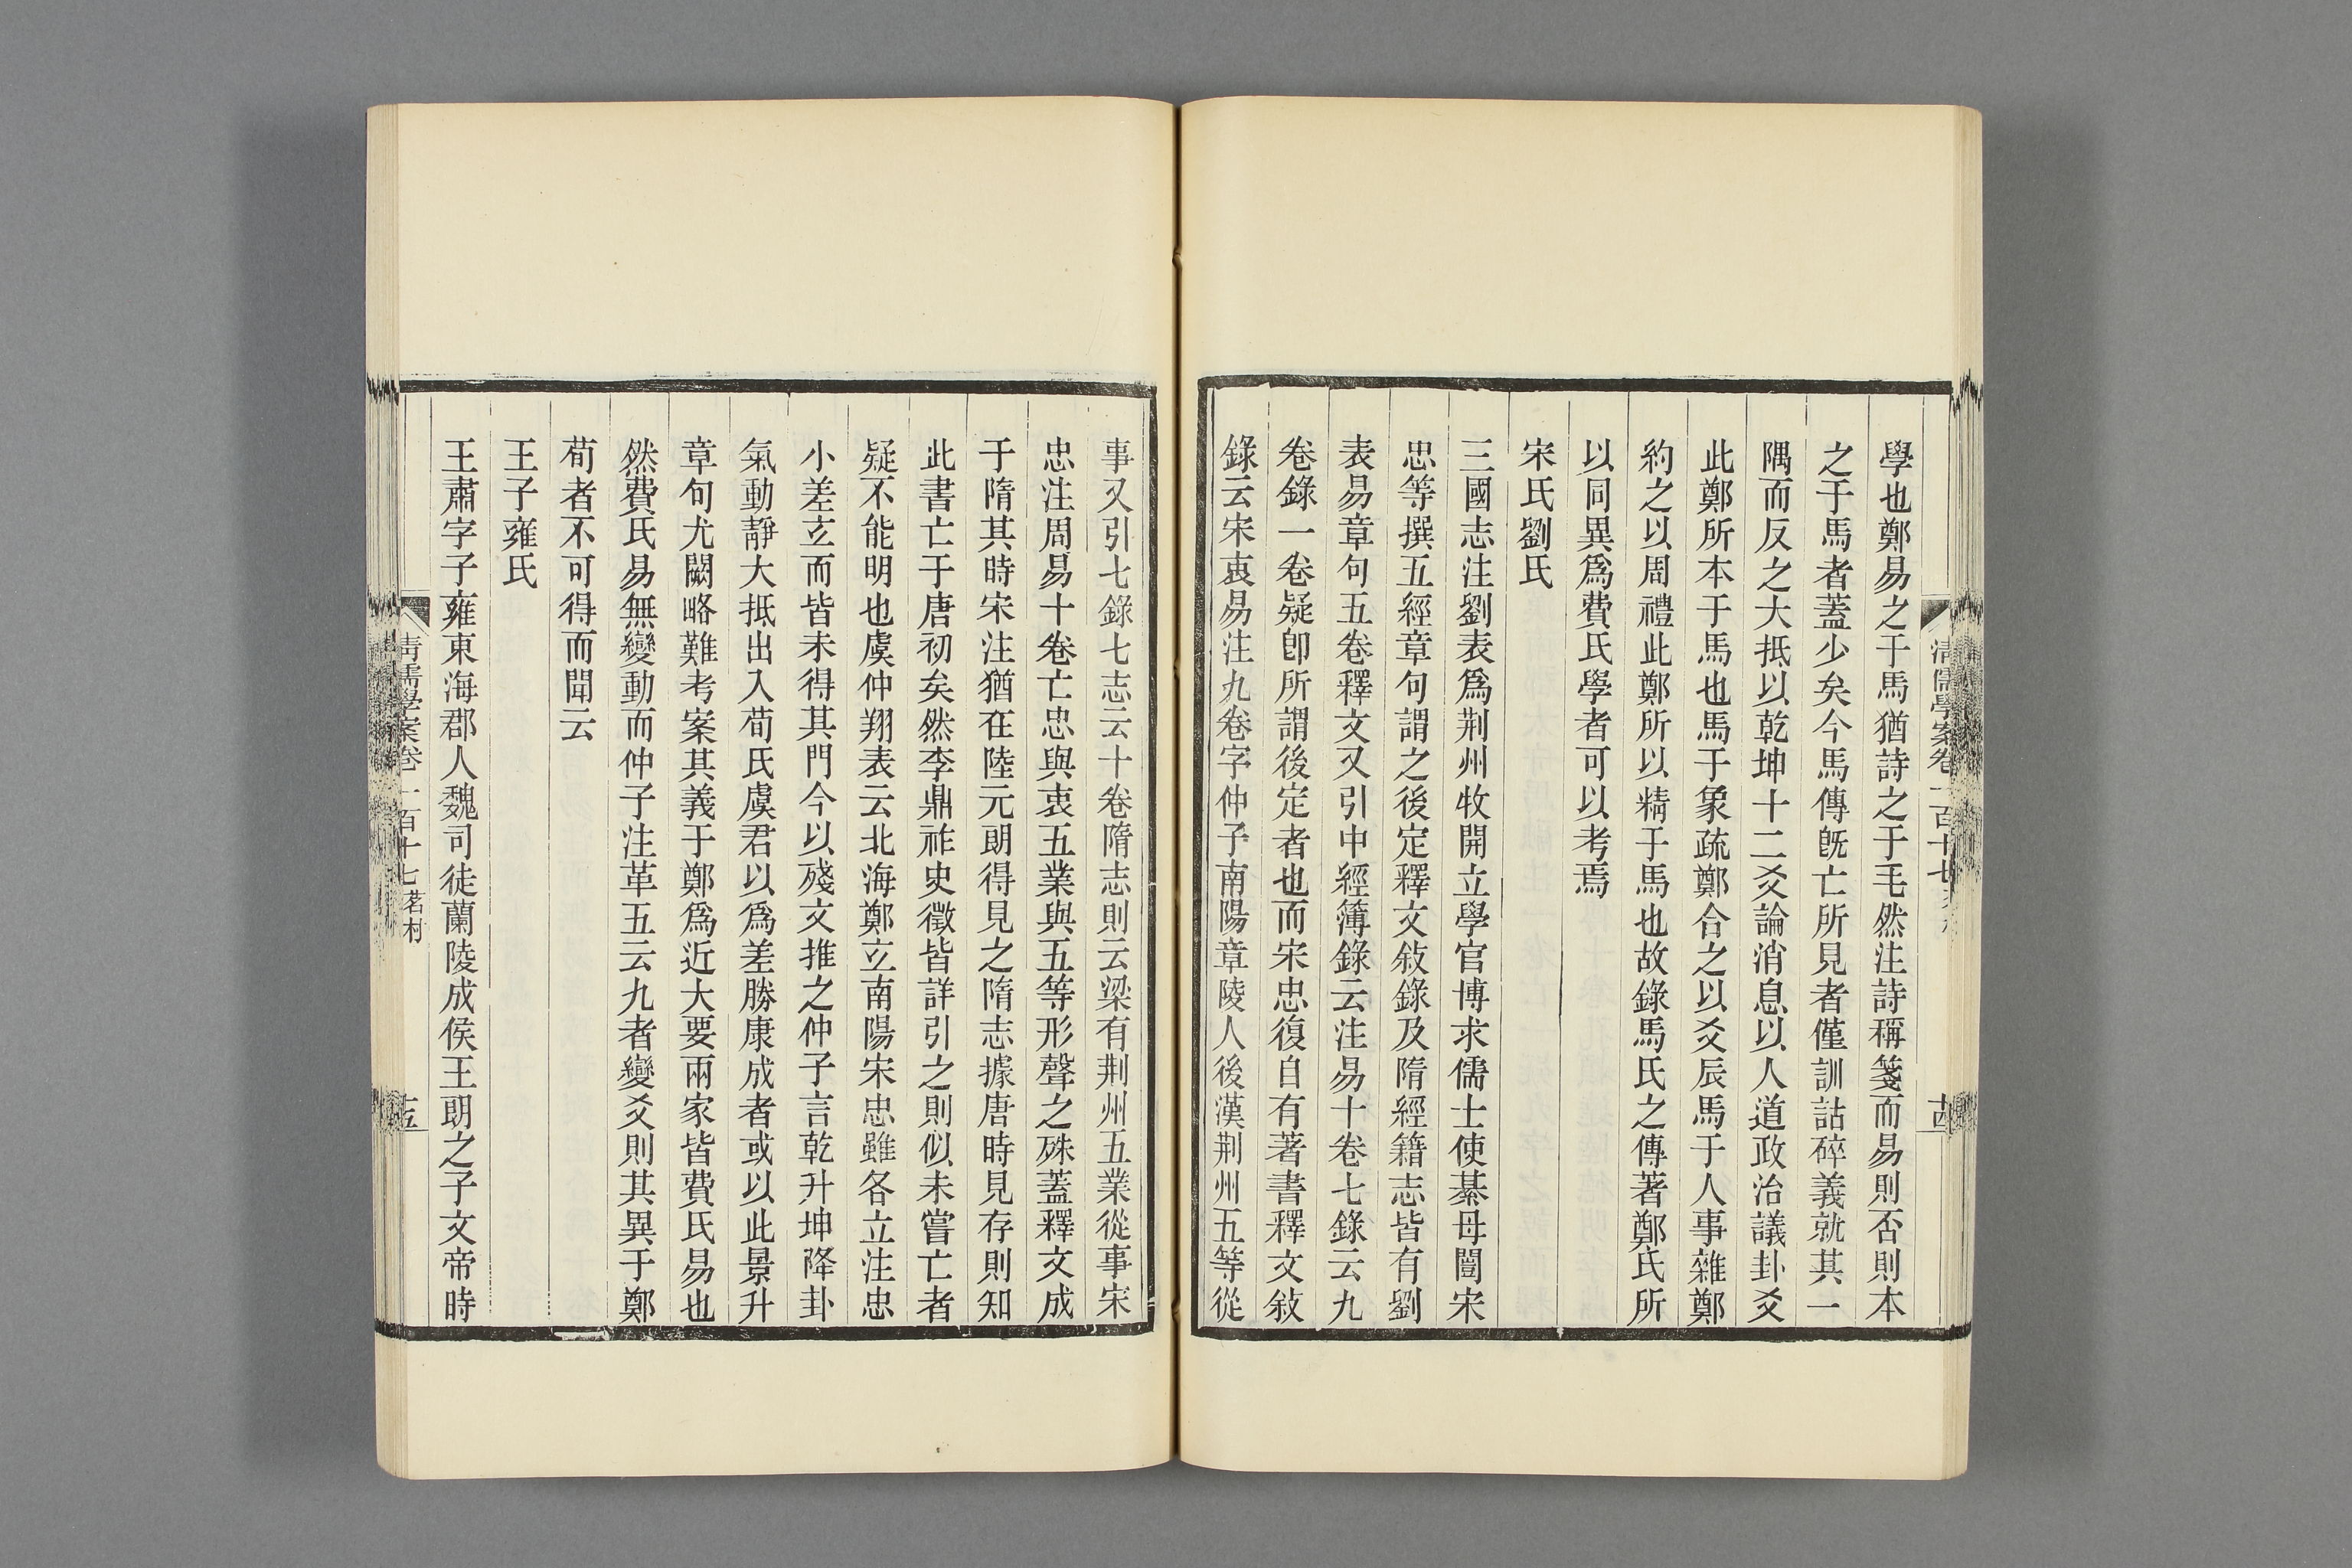 學也鄭易之于馬猶詩之于毛然注詩稱箋而易則否則本
之于馬者蓋少矣今馬傳旣亡所見者僅訓詁碎義就其一
隅而反之大抵以乾坤十二爻論消息以人道政治議卦爻
此鄭所本于馬也馬于象疏鄭合之以爻辰馬于人事雜鄭
約之以周禮此鄭所以精于馬也故錄馬氏之傳著鄭氏所
以同異爲費氏學者可以考焉
宋氏劉氏
三國志注劉表爲荆州牧開立學官博求儒士使綦母闓宋
忠等撰五經章句謂之後定釋文敍錄及隋經籍志皆有劉
表易章句五卷釋文又引中經簿錄云注易十卷七錄云九
卷錄一卷疑卽所謂後定者也而宋忠復自有著書釋文敍
錄云宋衷易注九卷字仲子南陽章陵人後漢荆州五等從
事又引七錄七志云十卷隋志則云梁有荆州五業從事宋
忠注周易十卷亡忠與衷五業與五等形聲之殊蓋釋文成
于隋其時宋注猶在陸元朗得見之隋志據唐時見存則知
此書亡于唐初矣然李鼎祚史徵皆詳引之則似未嘗亡者
疑不能明也虞仲翔表云北海鄭玄南陽宋忠雖各立注忠
小差玄而皆未得其門今以殘文推之仲子言乾升坤降卦
氣動靜大抵出入荀氏虞君以爲差勝康成者或以此景升
章句尤闕略難考案其義于鄭爲近大要兩家皆費氏易也
然費氏易無變動而仲子注革五云九者變爻則其異于鄭
荀者不可得而聞云
王子雍氏
王肅字子雍東海郡人魏司徒蘭陵成侯王朗之子文帝時
清儒學案卷一百十七 茗柯
十五
清儒學案卷一百十七
十四